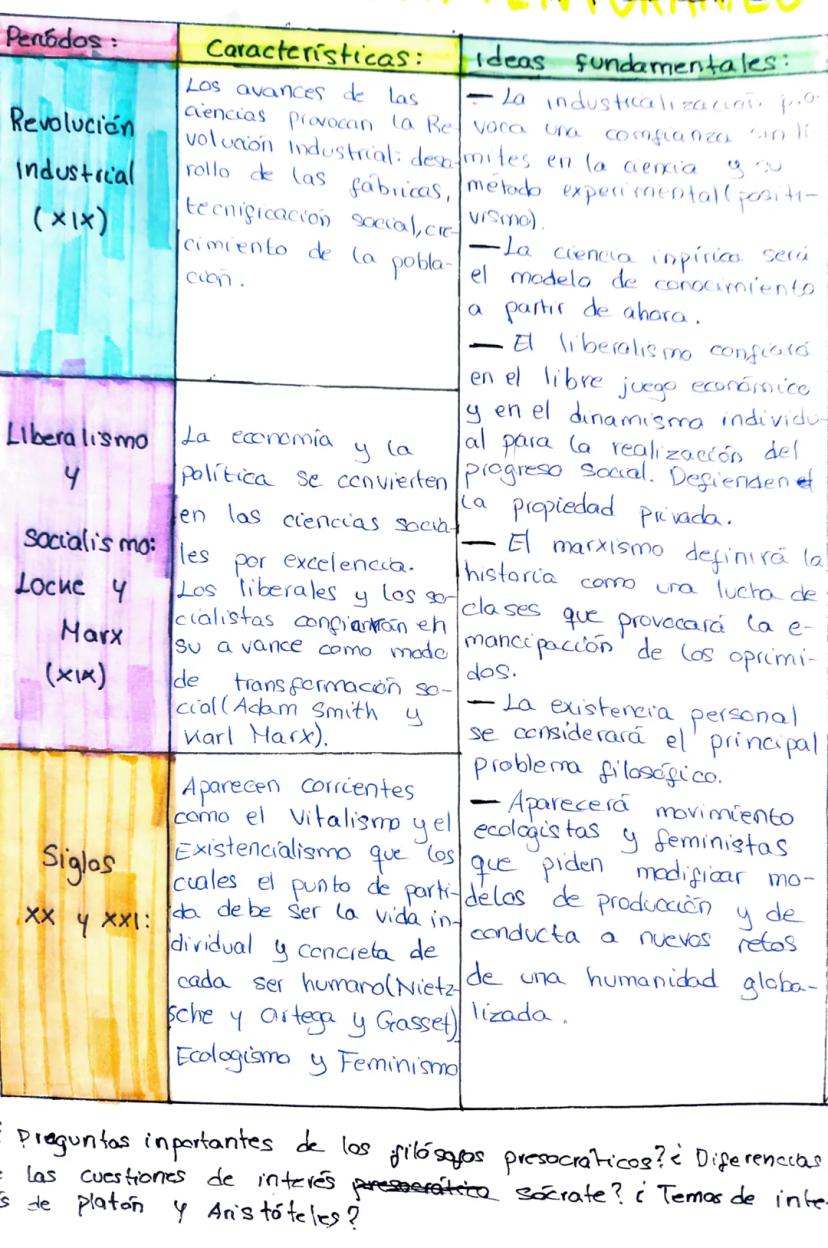 Períodos:
Revolución
industrial
(XIX)
Liberalismo
y
socialismo:
Locke y
Marx
(XIX)
Siglos
XX y XXI:
Características:
Los avances de las
ciencias provocan la Re
volución industrial: desa
rrollo de las fábricas,
tecnificación social, cre-
cimiento de la pobla-
ción.
La economía y la
política se convierten
en las ciencias socia-
les por excelencia.
Los liberales y los so-
cialistas confiarán en
su avance como modo
de transformación so-
cial (Adam Smith y
Karl Marx).
Aparecen corrientes
como el Vitalismo y el
Existencialismo que los
cuales el punto de parti-
da debe ser la vida in-
dividual y concreta de
cada ser humano (Nietz-
sche y Ortega y Gasset)
Ecologismo y Feminismo
ideas fundamentales:
— La industrialización
voca una confianza sin lí
mites en la ciencia y su
método experimental (positi-
vismo).
— La ciencia inpírica será
el modelo de conocimiento
a partir de ahora.
— El liberalismo confiará
en el libre juego económico
y en el dinamismo individu
al para la realización del
progreso social. Defienden
la propiedad privada.
— El marxismo definirá la
historia como una lucha de
clases que provocará la e-
mancipación de los oprimi-
dos.
— La existencia personal
se considerará el principal
problema filosófico.
— Aparecerá movimiento
ecologistas y feministas
que piden modificar mo-
delos de producción y de
conducta a nuevos retos
de una humanidad globa-
lizada.
Preguntas inportantes de los filósofos presocráticos? ¿Diferencias
las cuestiones de interés presocrática sócrate? ¿Temas de inte-
s de platón y Aristóteles?